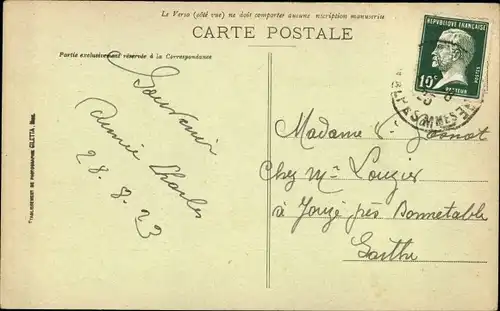 Le Verso (côté vue) ne doit comporter aucune inscription manuscrite
CARTE POSTALE
Partie exclusivement réservée à la Correspondance
RÉPUBLIQUE FRANÇAISE
10c
POSTES
PASTEUR
ALPES MMES
Souvenir
Année Charles
28.8.23
Madame
Chez Mr Louzier
à Jouzé près Bonnetable
Sarthe
ETABLISSEMENT DE PHOTOGRAPHIE GILETTA, Nice